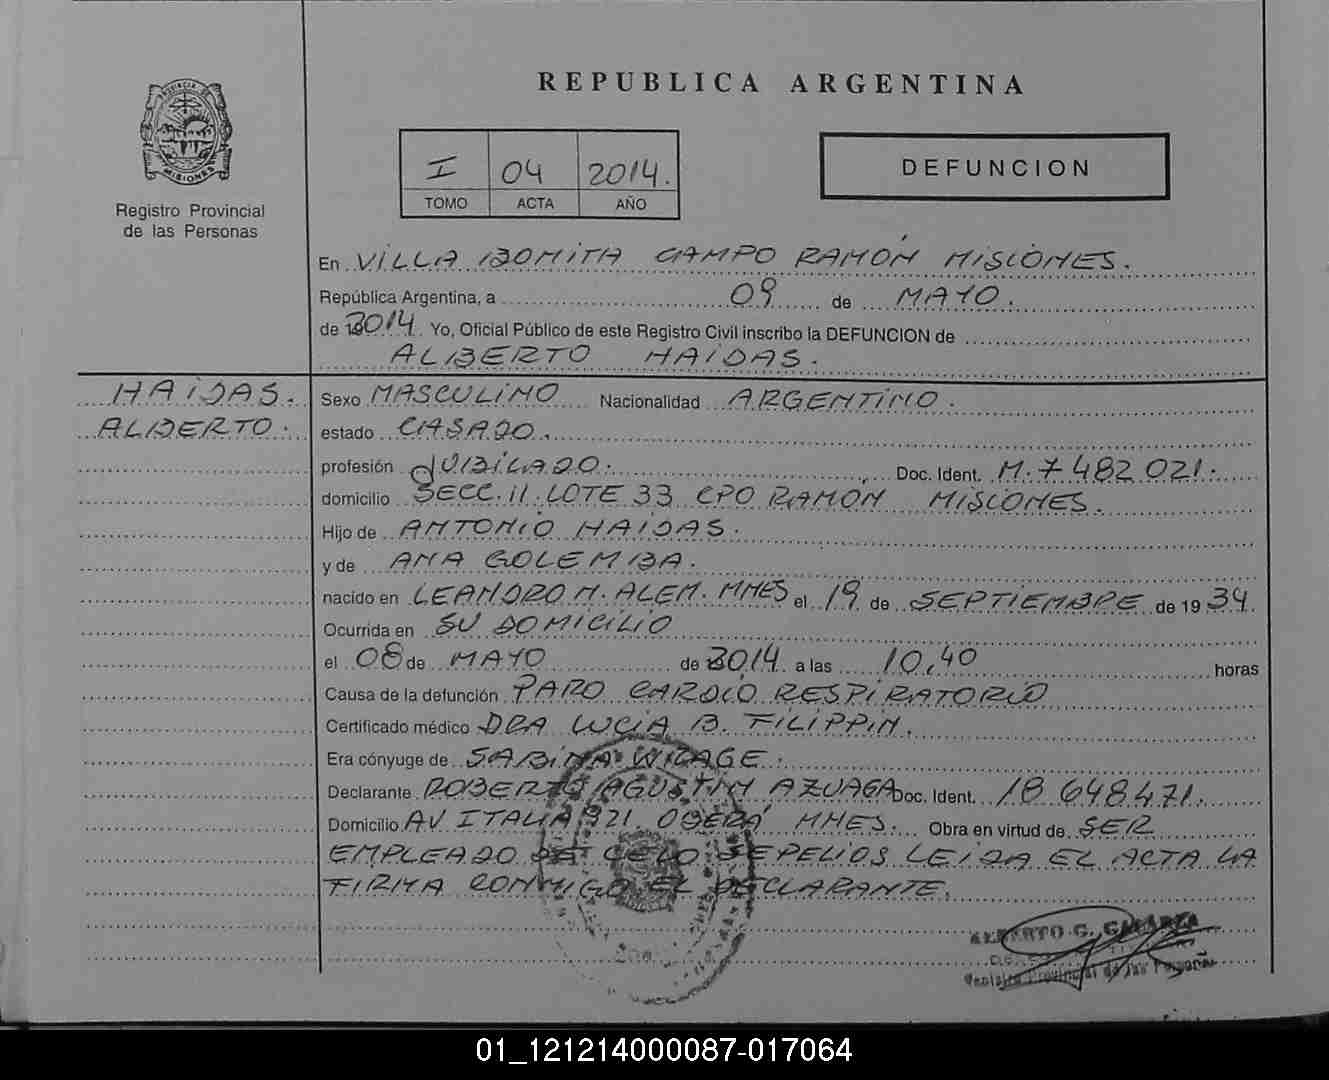 REPUBLICA ARGENTINA
PROVINCIA DE
MISIONES
Registro Provincial
de las Personas
I 04 2014.
TOMO ACTA AÑO
DEFUNCION
En VILLA BONITA CAMPO RAMÓN MISIONES.
República Argentina, a 09 de MAYO.
de 2014 Yo, Oficial Público de este Registro Civil inscribo la DEFUNCION de
ALBERTO HAIDAS.
HAIDAS.
ALBERTO.
Sexo MASCULINO Nacionalidad ARGENTINO.
estado CASADO.
profesión JUBILADO. Doc. Ident. M. 7 482 021.
domicilio SECC. II. LOTE 33 CPO RAMÓN MISIONES.
Hijo de ANTONIO HAIDAS.
y de ANA GOLEMBA.
nacido en LEANDRO N. ALEM. MNES el 19 de SEPTIEMBRE de 19 34.
Ocurrida en SU DOMICILIO
el 08 de MAYO de 2014 a las 10,40 horas
Causa de la defunción PARO CARDIO RESPIRATORIO
Certificado médico DRA LUCIA B. FILIPPIN.
Era cónyuge de SABINA WIRAGE.
Declarante ROBERTO AGUSTIN AZUAGA Doc. Ident. 18 648.471.
Domicilio AV ITALIA 921. OBERÁ MNES. Obra en virtud de SER
EMPLEADO DE CELO SEPELIOS LEIDA EL ACTA LA
FIRMA CONMIGO EL DECLARANTE.
ALBERTO G.
Registro Provincial de las Personas
01_121214000087-017064